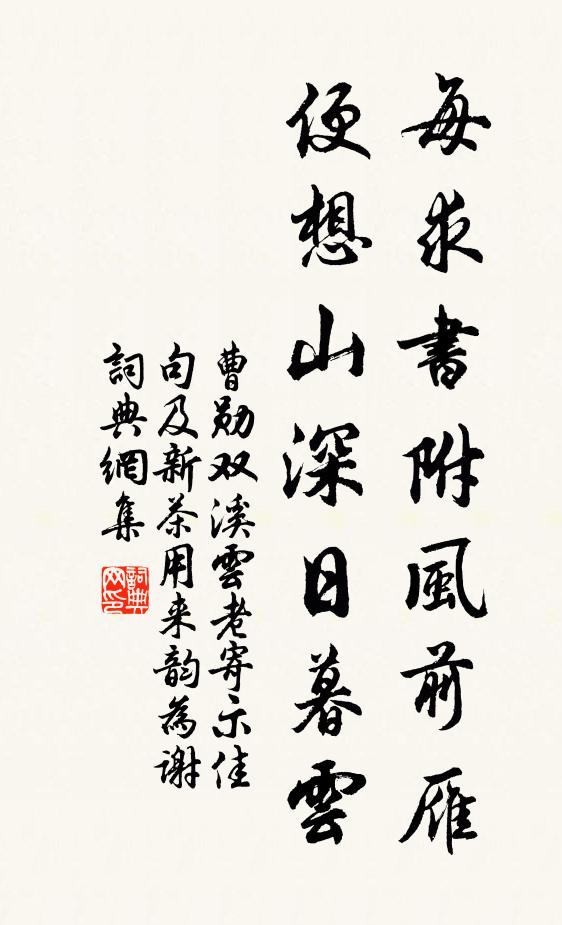 每求書附風前雁
便想山深日暮雲
曹勛双溪雲老寄示佳
句及新茶用来韵為謝
詞典網集
詞典
网印